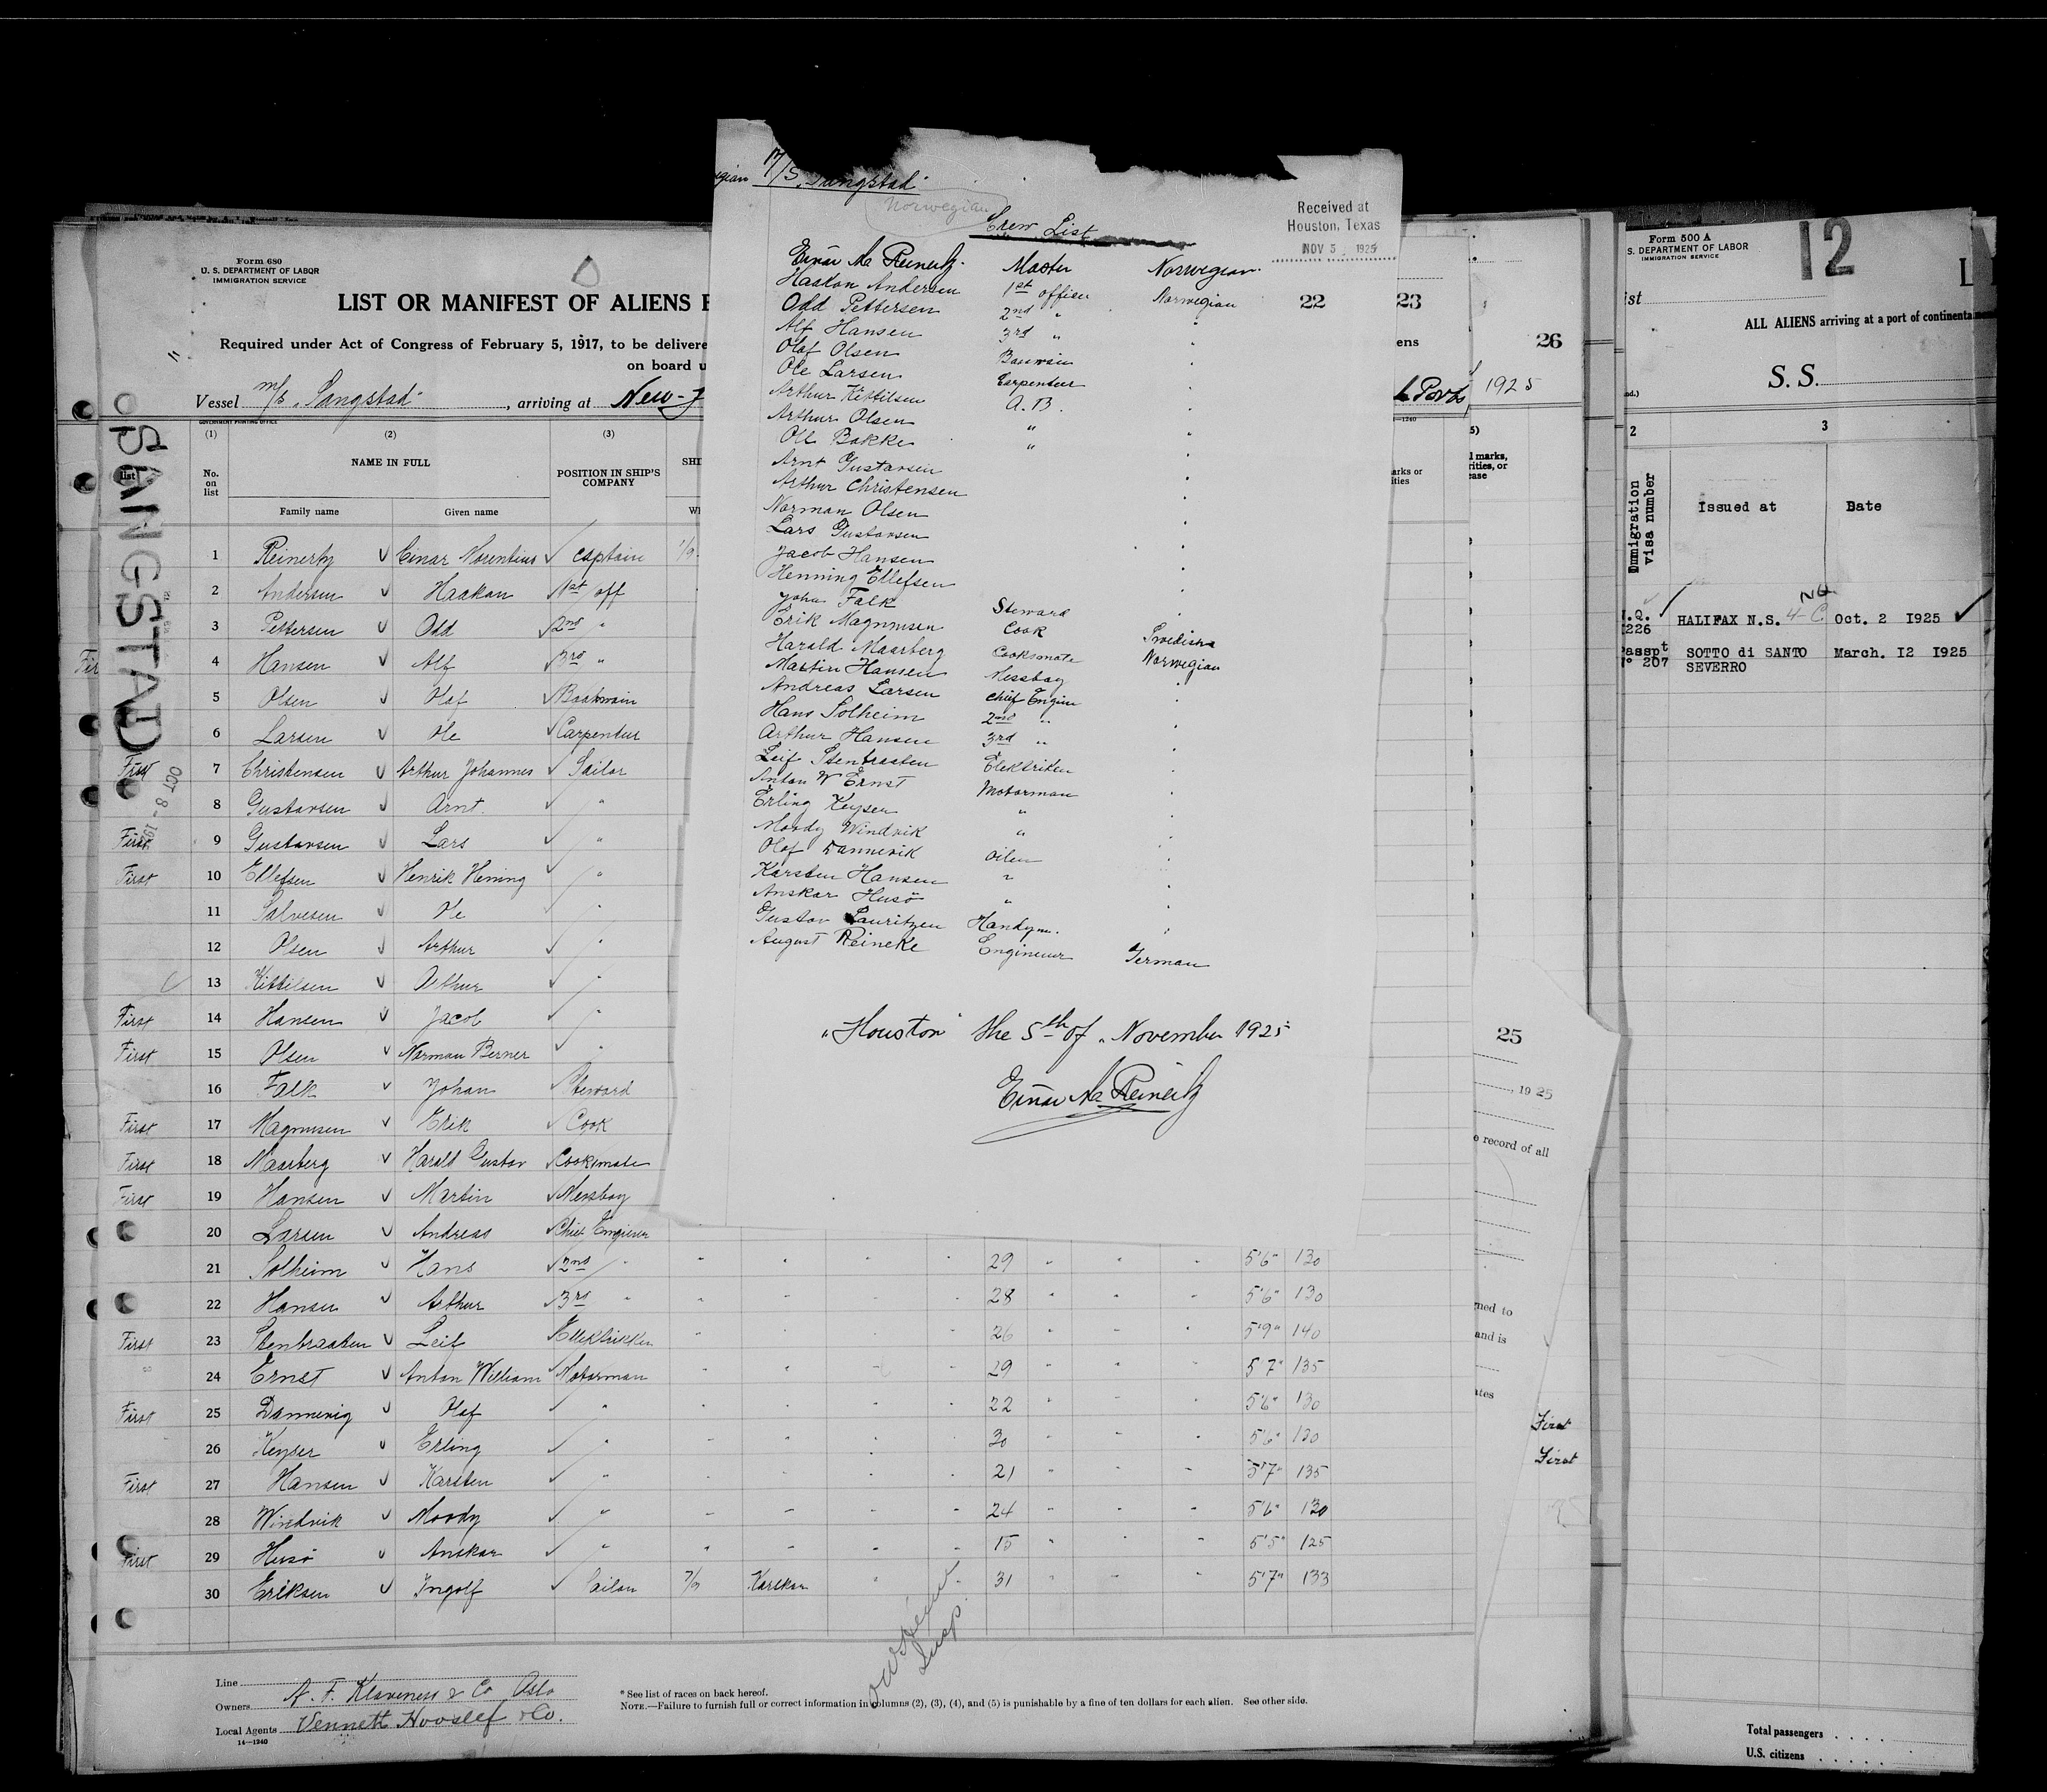 M/S "Sangstad"
Norwegian
Crew List
Received at
Houston, Texas
NOV 5 1925
Einar M. Reinertz. Master Norwegian.
Haakon Andersen 1st officer Norwegian
Odd Pettersen 2nd "
Alf Hansen 3rd "
Olaf Olsen
Ole Larsen Carpenter
Arthur Kittilsen A.B.
Arthur Olsen "
Ole Bakke "
Arnt Gustavsen
Arthur Christensen
Norman Olsen
Lars Gustavsen
Jacob Hansen
Henning Ellefsen
Johan Falk Steward
Erik Magnusen Cook Swedish
Harald Maarberg Cooksmate Norwegian
Martin Hansen Messboy
Andreas Larsen Chief Engin
Hans Solheim 2nd "
Arthur Hansen 3rd "
Leif Stenbraaten
Anton W Ernst Motorman
Erling Keyser "
Moody Windvik "
Olof Dannevik Oiler
Karsten Hansen "
Anskar Husö "
Gustav Lauritzen Handym.
August Reineke Engineer German
"Houston" the 5th of November 1925
Einar M. Reinertz
Form 680
U. S. DEPARTMENT OF LABOR
IMMIGRATION SERVICE
LIST OR MANIFEST OF ALIENS
Required under Act of Congress of February 5, 1917, to be delivere
on board
Vessel M/S "Sangstad" , arriving at New-
GOVERNMENT PRINTING OFFICE
SANGSTAD
(1) (2) (3)
No. on list
NAME IN FULL
POSITION IN SHIP'S COMPANY
Family name Given name
1 Reinertz Einar captain
2 Andersen Haakon 1st off
3 Pettersen Odd 2nd "
4 Hansen Alf 3rd "
5 Olsen Olaf Boatswain
6 Larsen Ole Carpenter
First 7 Christensen Arthur Johannes Sailor
8 Gustavsen Arnt. "
First 9 Gustavsen Lars "
First 10 Ellefsen Henrik Hening "
11 Salvesen Ole "
12 Olsen Arthur "
13 Kittilsen Arthur "
First 14 Hansen Jacob "
First 15 Olsen Norman Berner "
16 Falk Johan Steward
First 17 Magnusen Erik Cook
First 18 Maarberg Harald Gustav Cooksmate
First 19 Hansen Martin Messboy
20 Larsen Andreas Chief Engineer
21 Solheim Hans 2nd " 29 5'6" 130
22 Hansen Arthur 3rd " 28 5'6" 130
First 23 Stenbraaten Leif 26 5'9" 140
24 Ernst Anton William Motorman 29 5'7" 135
First 25 Dannevig Olaf " 22 5'6" 130
26 Keyser Erling " 30 5'6" 130
First 27 Hansen Karsten " 21 5'7" 135
28 Windvik Moody " 24 5'6" 130
First 29 Husö Anskar " 15 5'5" 125
30 Eriksen Ingolf Sailor 7/9 31 5'7" 133
Line
Owners A. F. Klaveness & Co Oslo
Local Agents
14—1240
* See list of races on back hereof.
NOTE.—Failure to furnish full or correct information in columns (2), (3), (4), and (5) is punishable by a fine of ten dollars for each alien. See other side.
22
23
26
1925
25
1925
e record of all
ned to
and is
First
First
Form 500 A
S. DEPARTMENT OF LABOR
IMMIGRATION SERVICE
12
ist
ALL ALIENS arriving at a port of continenta
S. S.
2 3
Immigration visa number
Issued at Date
226 HALIFAX N.S. 4-C Oct. 2 1925
Passpt N° 207 SOTTO di SANTO SEVERRO March. 12 1925
Total passengers
U.S. citizens